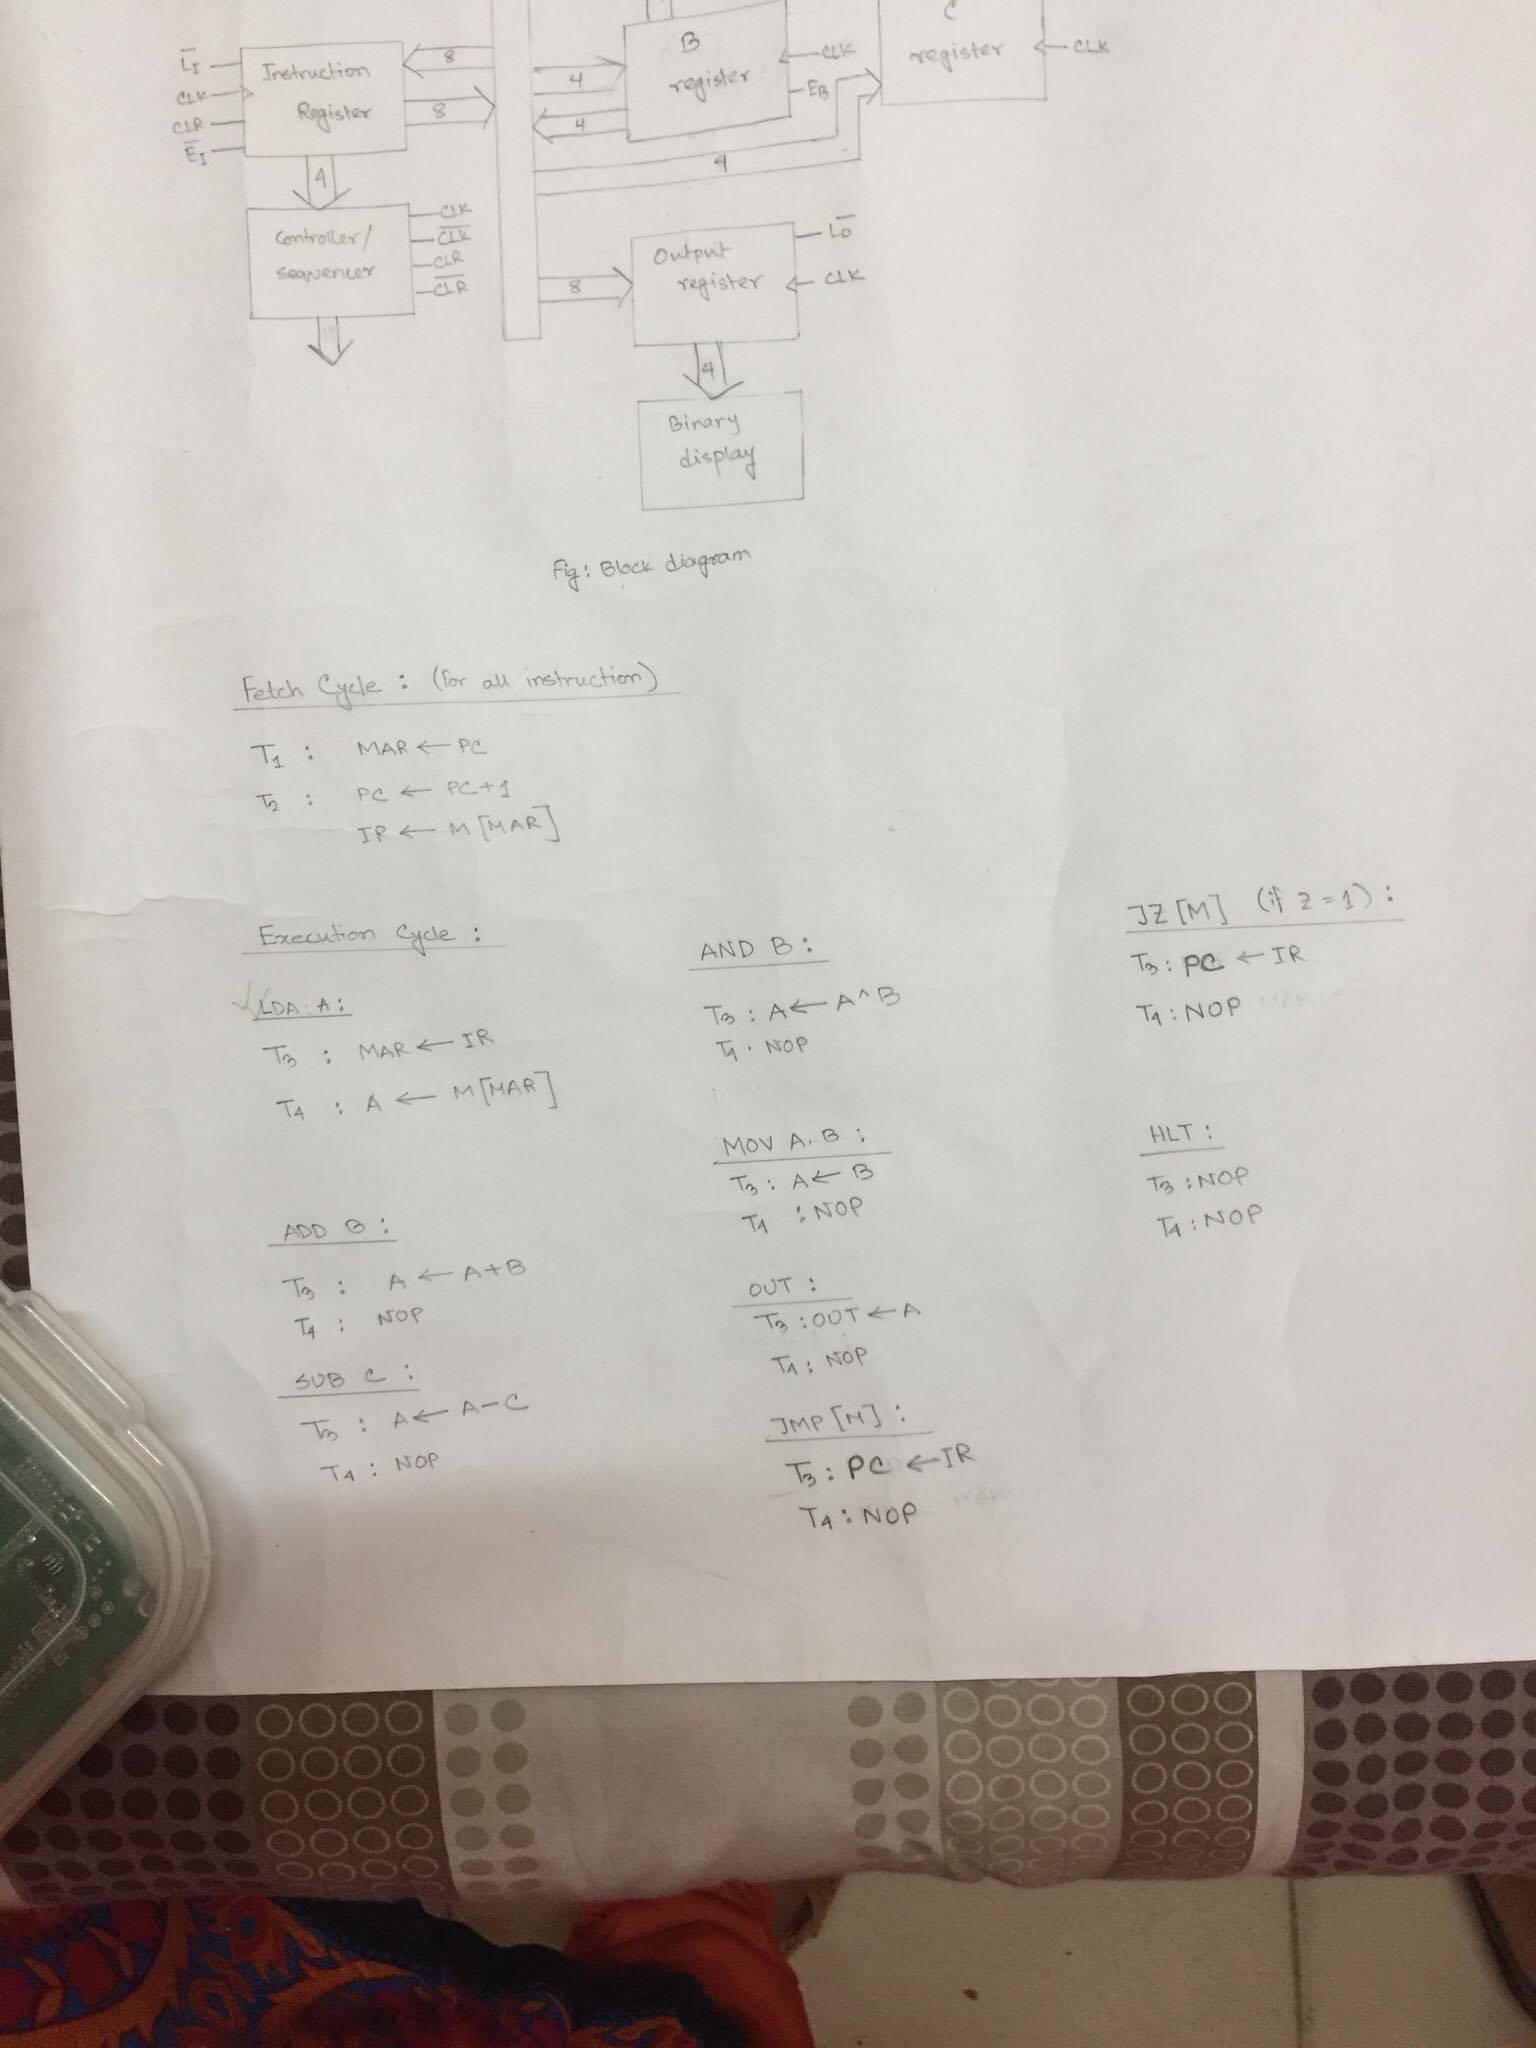 L̅I
CLK
CLR
E̅I
Instruction
Register
8
8
4
B
register
CLK
EB
4
4
4
C
register
CLK
Controller/
sequencer
CLK
C̅L̅K̅
CLR
C̅L̅R̅
8
Output
register
L̅O̅
CLK
4
Binary
display
Fig: Block diagram
Fetch Cycle : (for all instruction)
T1 : MAR ← PC
T2 : PC ← PC+1
IR ← M [MAR]
Execution Cycle :
LDA A :
T3 : MAR ← IR
T4 : A ← M[MAR]
ADD B :
T3 : A ← A+B
T4 : NOP
SUB C :
T3 : A ← A-C
T4 : NOP
AND B :
T3 : A ← A^B
T4 . NOP
MOV A, B :
T3 : A ← B
T4 : NOP
OUT :
T3 : OUT ← A
T4 : NOP
JMP [M] :
T3 : PC ← IR
T4 : NOP
JZ [M] (if z = 1) :
T3 : PC ← IR
T4 : NOP
HLT :
T3 : NOP
T4 : NOP